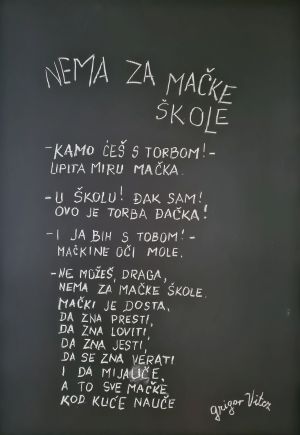 NEMA ZA MAČKE
ŠKOLE
-KAMO ĆEŠ S TORBOM!-
UPITA MIRU MAČKA.
-U ŠKOLU! ĐAK SAM!
OVO JE TORBA ĐAČKA!
-I JA BIH S TOBOM!-
MAČKINE OČI MOLE.
-NE MOŽEŠ, DRAGA,
NEMA ZA MAČKE ŠKOLE.
MAČKI JE DOSTA,
DA ZNA PRESTI,
DA ZNA LOVITI,
DA ZNA JESTI,
DA SE ZNA VERATI
I DA MIJAUČE,
A TO SVE MAČKE
KOD KUĆE NAUČE
Grigor Vitez